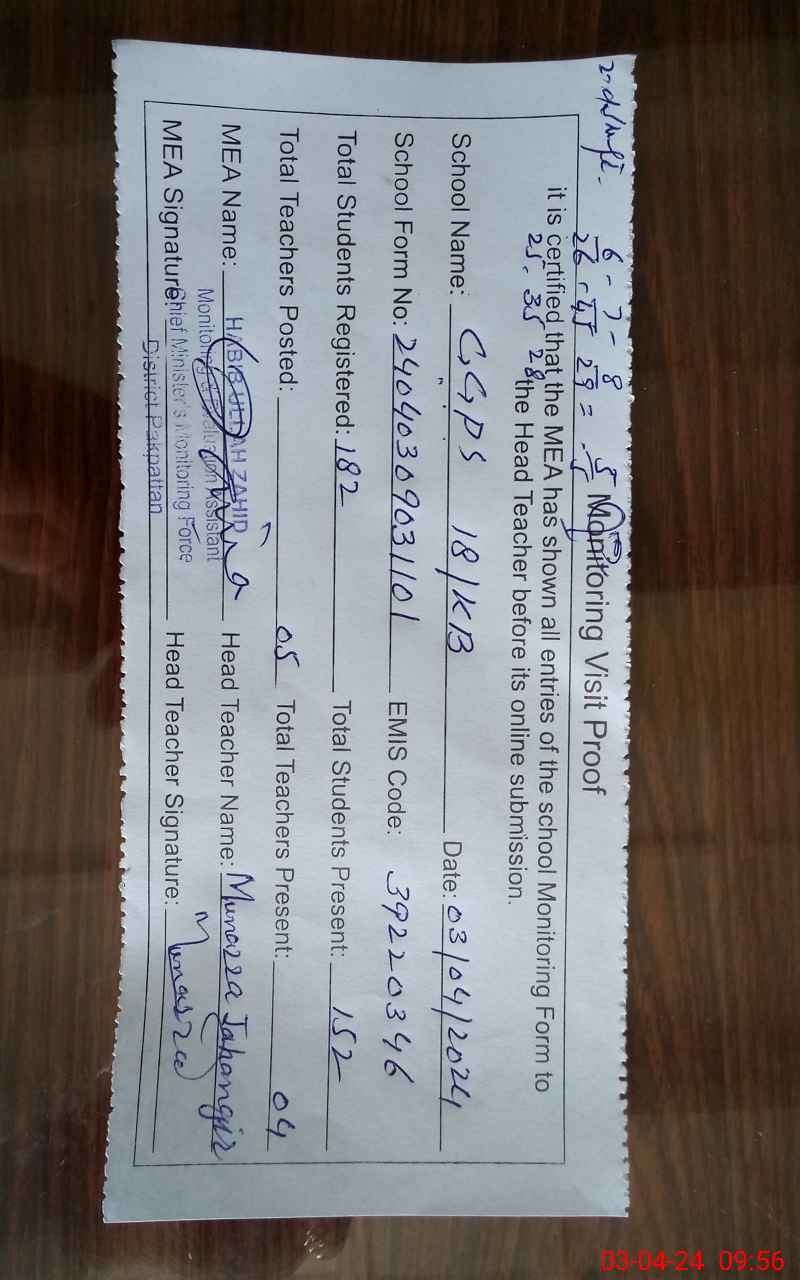 6 - 7 - 8 5
26 - 45 29 = - 5
Monitoring Visit Proof
it is certified that the MEA has shown all entries of the school Monitoring Form to
25 - 35 28
the Head Teacher before its online submission.
School Name: GGPS 18/KB Date: 03/04/2024
School Form No: 24040309031101 EMIS Code: 39220346
Total Students Registered: 182 Total Students Present: 152
Total Teachers Posted: 05 Total Teachers Present: 04
MEA Name: HABIB ULLAH ZAHID Head Teacher Name: Munazza Jahangir
Monitoring & Evaluation Assistant
MEA Signature: Chief Minister's Monitoring Force Head Teacher Signature: Munazza
District Pakpattan
03-04-24 09:56